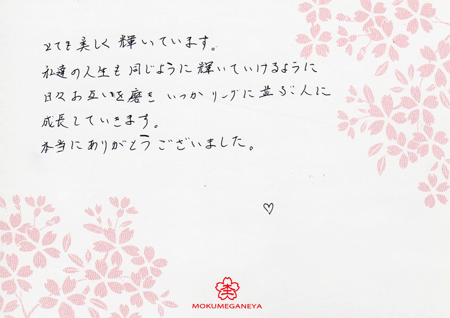 とても美しく輝いています。
私達の人生も同じように輝いていけるように
日々お互いを磨き いつかリングに並ぶ人に
成長していきます。
本当にありがとうございました。
♡
MOKUMEGANEYA